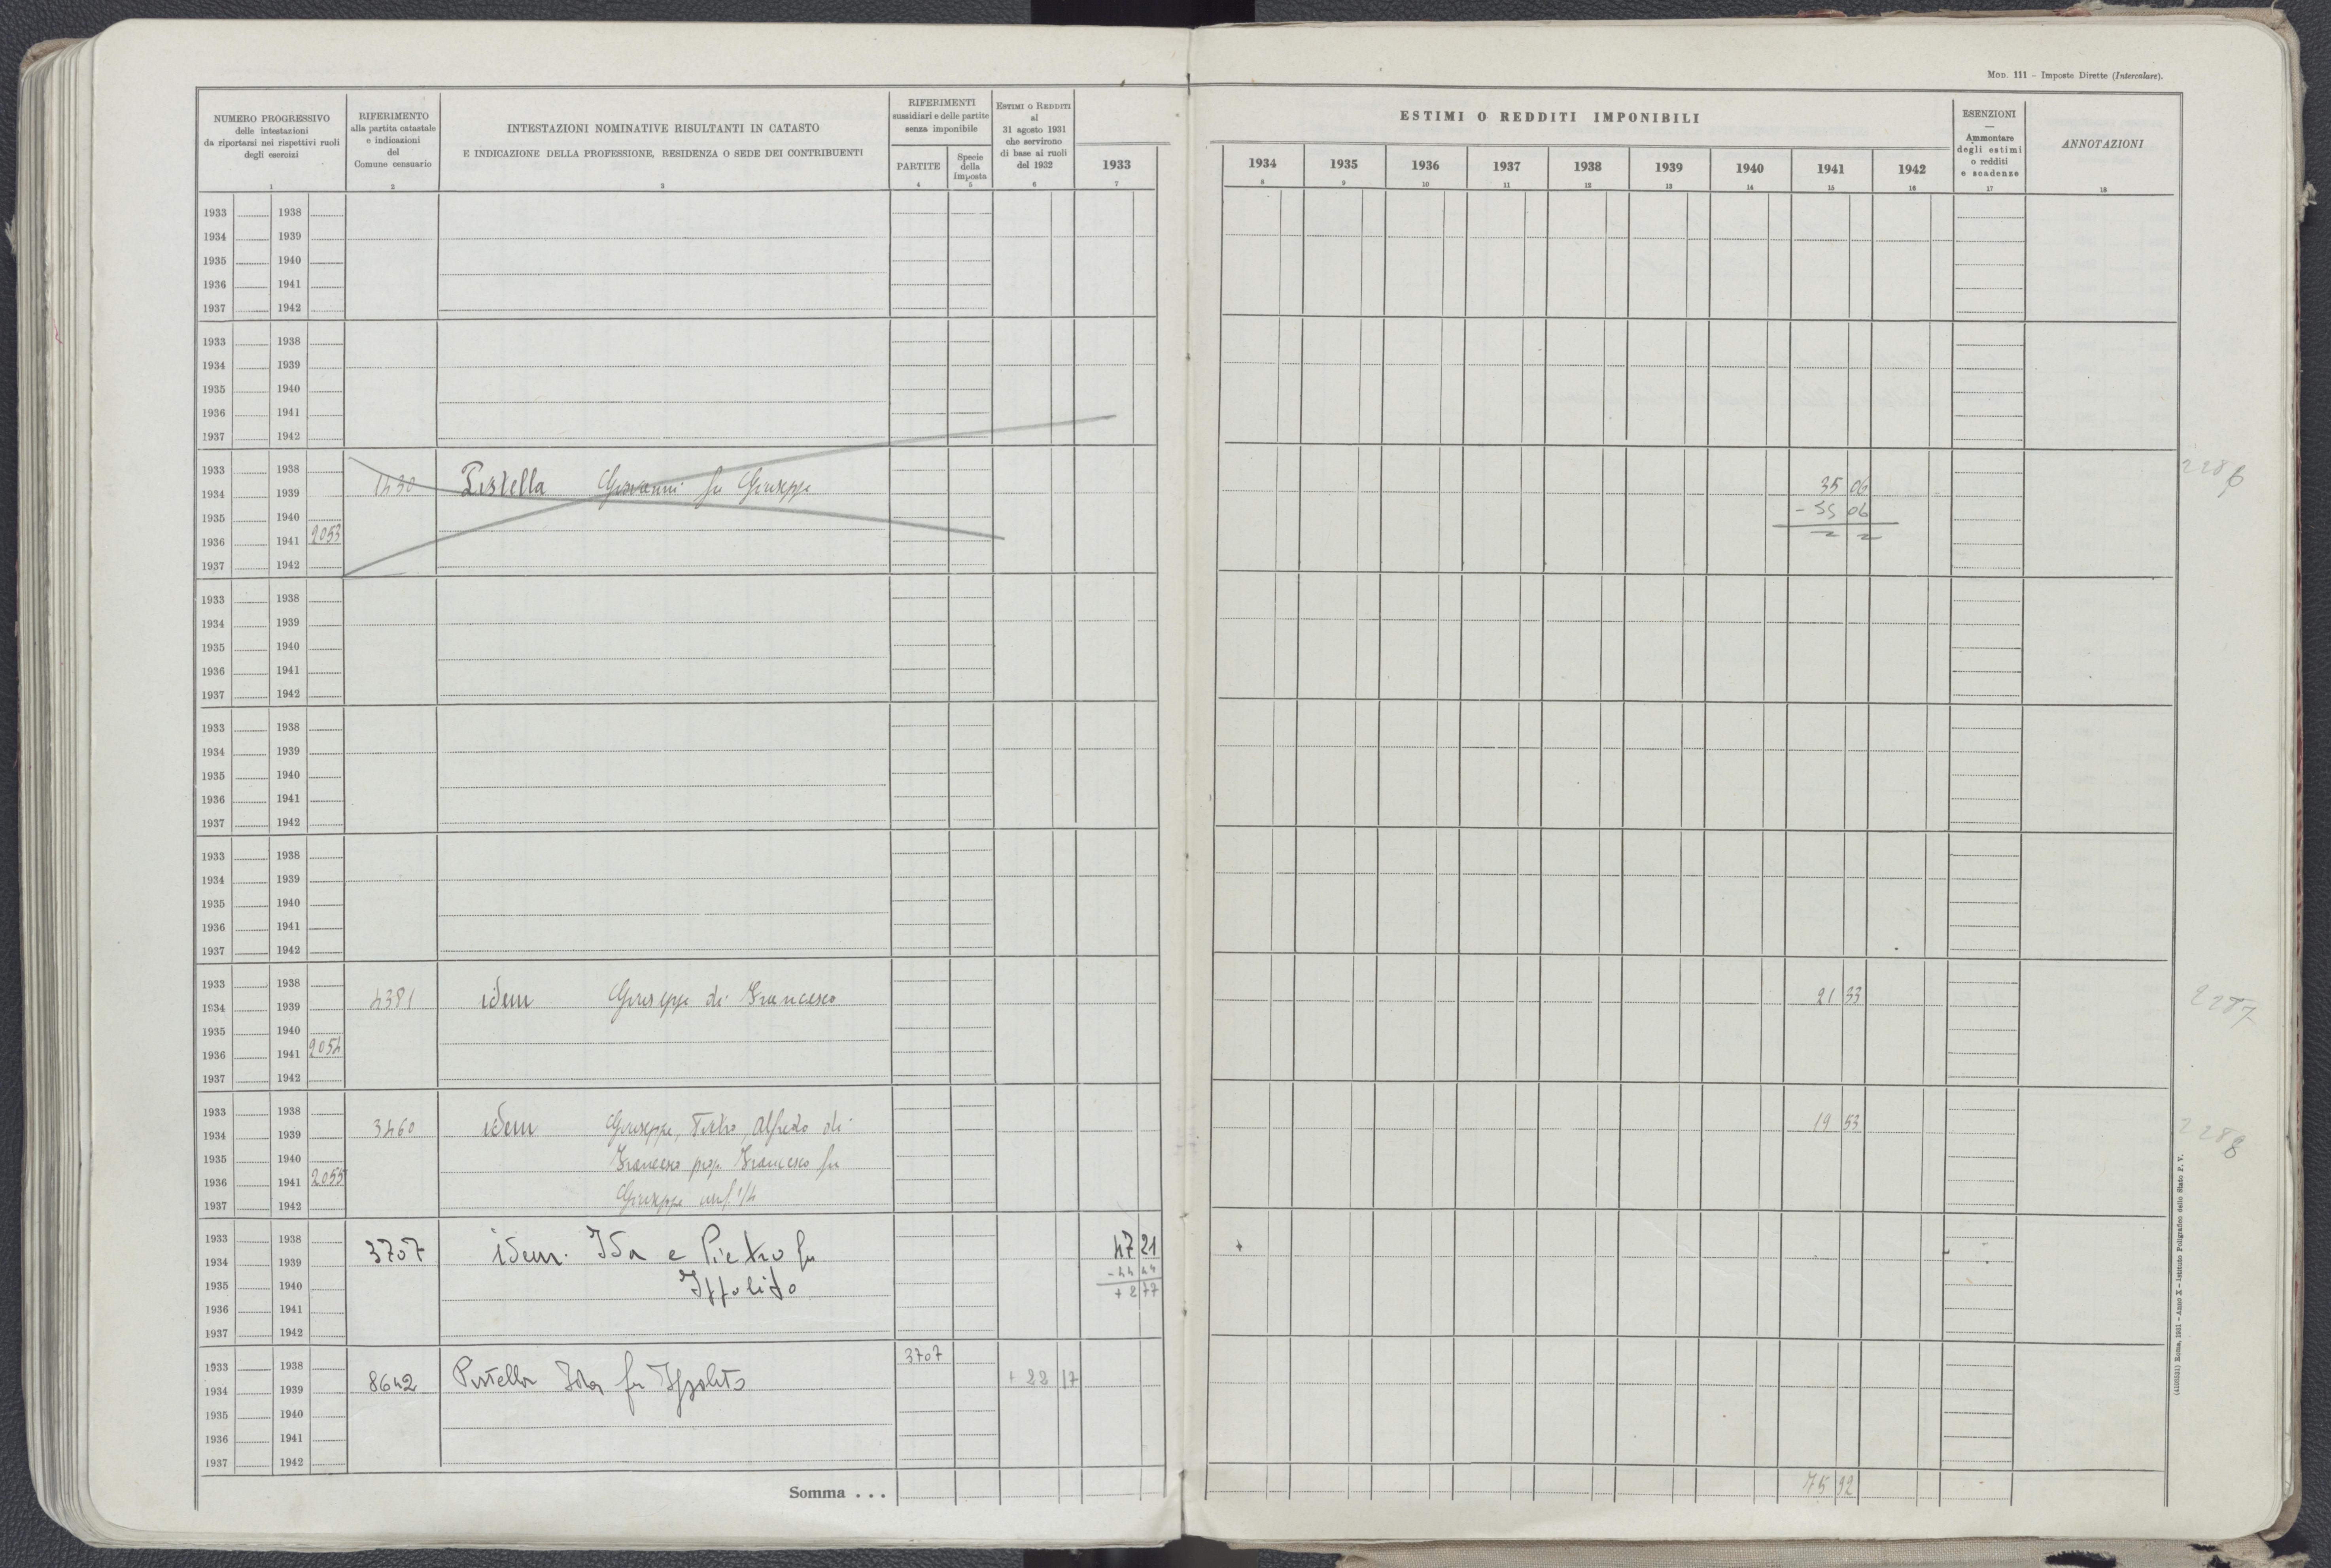 MOD. 111 – Imposte Dirette (Intercalare).
NUMERO PROGRESSIVO
delle intestazioni
da riportarsi nei rispettivi ruoli
degli esercizi
1
RIFERIMENTO
alla partita catastale
e indicazioni
del
Comune censuario
2
INTESTAZIONI NOMINATIVE RISULTANTI IN CATASTO
E INDICAZIONE DELLA PROFESSIONE, RESIDENZA O SEDE DEI CONTRIBUENTI
3
RIFERIMENTI
sussidiari e delle partite
senza imponibile
PARTITE
4
Specie
della
imposta
5
ESTIMI O REDDITI
al
31 agosto 1931
che servirono
di base ai ruoli
del 1932
6
1933
7
ESTIMI O REDDITI IMPONIBILI
1934 1935 1936 1937 1938 1939 1940 1941 1942
8 9 10 11 12 13 14 15 16
ESENZIONI
—
Ammontare
degli estimi
o redditi
e scadenze
17
ANNOTAZIONI
18
1933 1938
1934 1939
1935 1940
1936 1941
1937 1942
1933 1938
1934 1939
1935 1940
1936 1941
1937 1942
1933 1938
1934 1939 1430 Pistella Giovanni fu Giuseppe 35 06
1935 1940 - 35 06
1936 1941 2053
1937 1942
1933 1938
1934 1939
1935 1940
1936 1941
1937 1942
1933 1938
1934 1939
1935 1940
1936 1941
1937 1942
1933 1938
1934 1939
1935 1940
1936 1941
1937 1942
1933 1938
1934 1939 4381 idem Giuseppe di Francesco 21 33 2287
1935 1940
1936 1941 2054
1937 1942
1933 1938
1934 1939 3460 idem Giuseppe, Pietro, Alfredo di 19 53 2288
1935 1940 Francesco prop. Francesco fu
1936 1941 2055
1937 1942 Giuseppe usuf. 1/4
1933 1938
1934 1939 3707 idem. Ida e Pietro fu 47 21 +
1935 1940 Ippolito - 44 44
+ 2 77
1936 1941
1937 1942
1933 1938 3707
1934 1939 8642 Pistella Ida fu Ippolito + 22 17
1935 1940
1936 1941
1937 1942
Somma . . . 75 92
(4100531) Roma, 1931 – Anno X – Istituto Poligrafico dello Stato P. V.